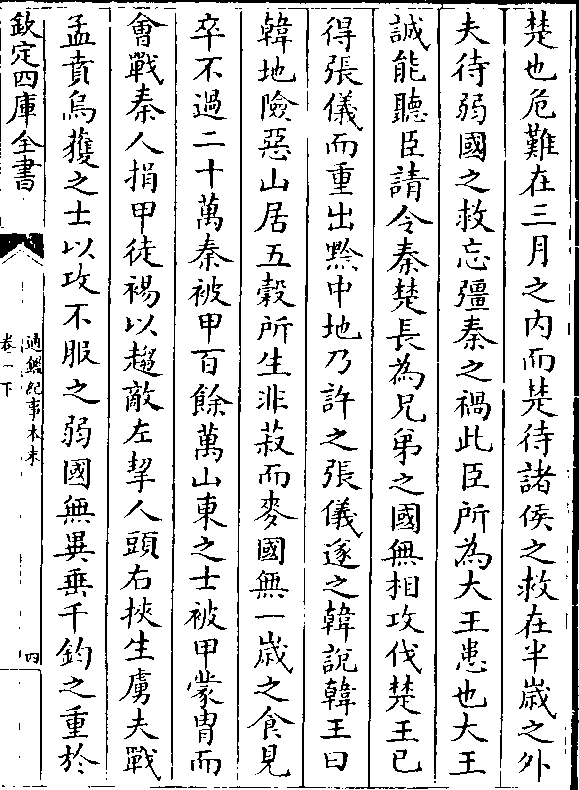 楚也危難在三月之内而楚待諸侯之救在半嵗之外
夫待弱國之救忘彊秦之禍此臣所為大王患也大王
誠能聽臣請令秦楚長為兄弟之國無相攻伐楚王已
得張儀而重出黔中地乃許之張儀遂之韓說韓王曰
韓地險惡山居五糓所生非菽而麥國無一嵗之食見
卒不過二十萬秦被甲百餘萬山東之士被甲蒙胄而
會戰秦人捐甲徒裼以趨敵左挈人頭右挾生虜夫戰
孟賁烏獲之士以攻不服之弱國無異垂千鈞之重於
欽定四庫全書
通鑑紀事本末
卷一下
四